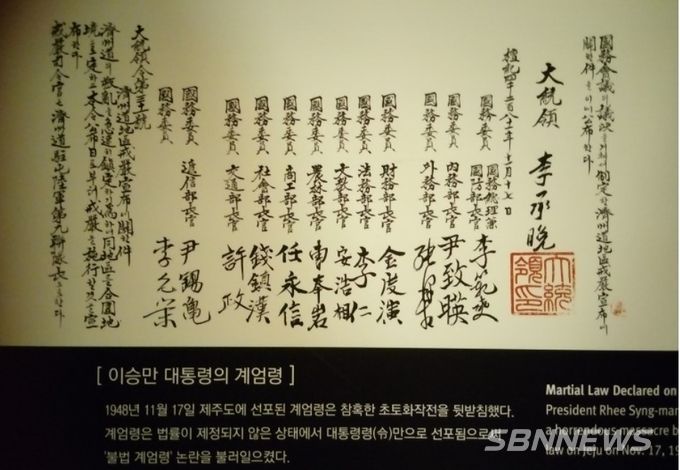 國務會議의議決을거쳐서制定한濟州道地區戒嚴宣布에
關한件을이에公布한다
大統領 李承晩
大統領印
檀紀四千二百八十一年十一月十七日
國務委員 國務總理兼國防部長官 李範奭
國務委員 內務部長官 尹致暎
國務委員 外務部長官
國務委員 財務部長官 金度演
國務委員 法務部長官 李仁
國務委員 文敎部長官 安浩相
國務委員 農林部長官 曺奉岩
國務委員 商工部長官 任永信
國務委員 社會部長官 錢鎭漢
國務委員 交通部長官 許政
國務委員 遞信部長官 尹錫龜
國務委員 李允榮
大統領令第三十一號
濟州道地區戒嚴宣布에關한件
濟州道의叛亂을急速히鎭定하기爲하야同地區를合圍地
境으로定하고本令公布日로부터戒嚴을施行할것을宣
布한다
戒嚴司令官은濟州道駐屯陸軍第九聯隊長으로한다
[ 이승만 대통령의 계엄령 ]
1948년 11월 17일 제주도에 선포된 계엄령은 참혹한 초토화작전을 뒷받침했다.
계엄령은 법률이 제정되지 않은 상태에서 대통령령(令)만으로 선포됨으로써
'불법 계엄령' 논란을 불러일으켰다.
Martial Law Declared on
President Rhee Syng-man
a horrendous massacre b
law on Jeju on Nov. 17, 19
SBNNEWS